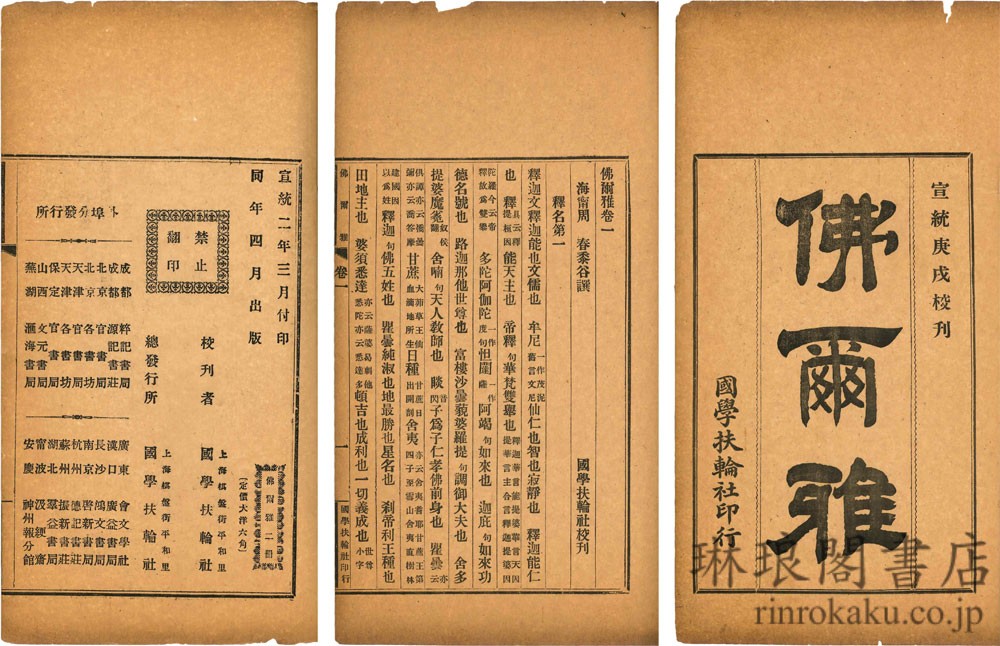 宣統庚戌校刊
佛爾雅
國學扶輪社印行
佛爾雅卷一
海甯周 春黍谷譔 國學扶輪社校刊
釋名第一
釋迦文釋迦能也文儒也 牟尼一作茂泥舊言文尼仙仁也智也寂靜也 釋迦能仁
也 釋提桓因能天主也 帝釋句華梵雙舉也
多陀阿伽陀 怛闥 阿竭句如來也 迦庇句如來功
德名號也 路迦那他世尊也 富樓沙曇藐婆羅提句調御大夫也 舍多
提婆魔㝹 舍喃句天人教師也 睒音閃子爲子仁孝佛前身也 瞿曇
甘蔗 日種 舍夷
釋迦句佛五姓也 瞿曇純淑也地最勝也星名也 刹帝利王種也
田地主也 婆須悉達 頓吉也成利也一切義成也
佛爾雅 卷一 一 國學扶輪社印行
宣統二年三月付印
同年四月出版
佛爾雅二册
(定價大洋六角)
禁止翻印
校刊者 上海棋盤街平和里 國學扶輪社
總發行所 上海棋盤街平和里 國學扶輪社
外埠分發行所
成都 粹記書局
成都 源記書莊
北京 官書局
北京 各書坊
天津 官書局
天津 各書坊
保定 官書局
山西 文元書局
蕪湖 滙海書局
廣東 會文學社
漢口 廣益書局
長沙 鴻文書局
南京 啓新書局
杭州 德記書莊
蘇州 振新書莊
湖北 羣益書局
甯波 汲綆齋
安慶 神州報分館
琳琅閣書店
rinrokaku.co.jp